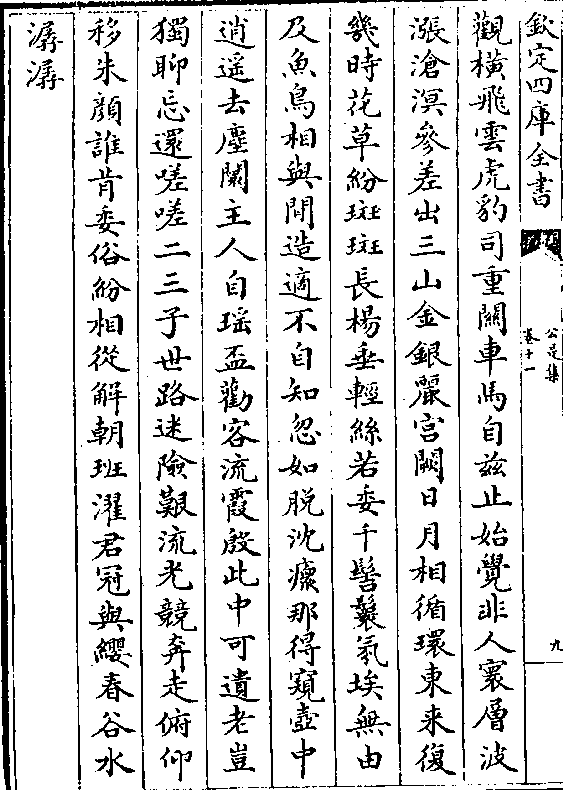 欽定四庫全書
公是集
卷十一
九
觀橫飛雲虎豹司重關車馬自兹止始覺非人寰層波
漲滄溟參差出三山金銀麗宮闕日月相循環東来復
幾時花草紛斑斑長楊垂輕絲若委千髻鬟氛埃無由
及魚鳥相與閒造適不自知忽如脱沈瘝那得窺壺中
逍遥去塵闤主人自瑶盃勸客流霞殷此中可遺老豈
獨聊忘還嗟嗟二三子世路迷險艱流光競奔走俯仰
移朱顔誰肯委俗紛相從解朝班濯君冠與纓春谷水
潺潺